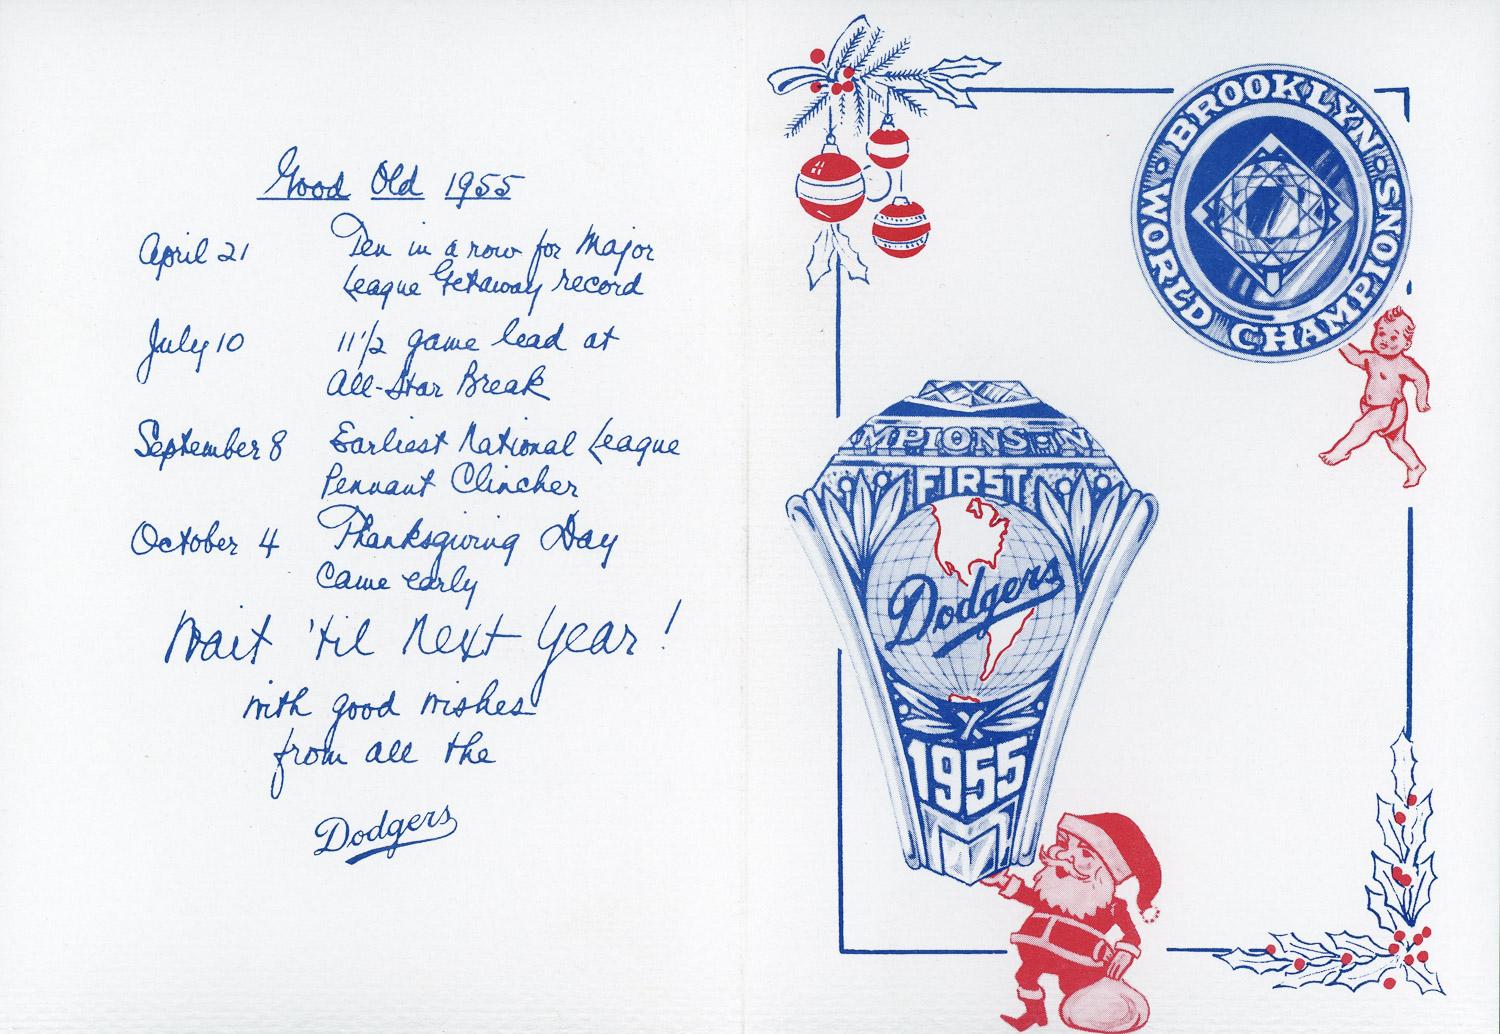 Good Old 1955
April 21 Ten in a row for Major
League Getaway record
July 10 11 1/2 game lead at
All-Star Break
September 8 Earliest National League
Pennant Clincher
October 4 Thanksgiving Day
Came early
Wait 'til Next Year!
with good wishes
from all the
Dodgers
BROOKLYN
WORLD CHAMPIONS
MPIONS N
FIRST
Dodgers
1955